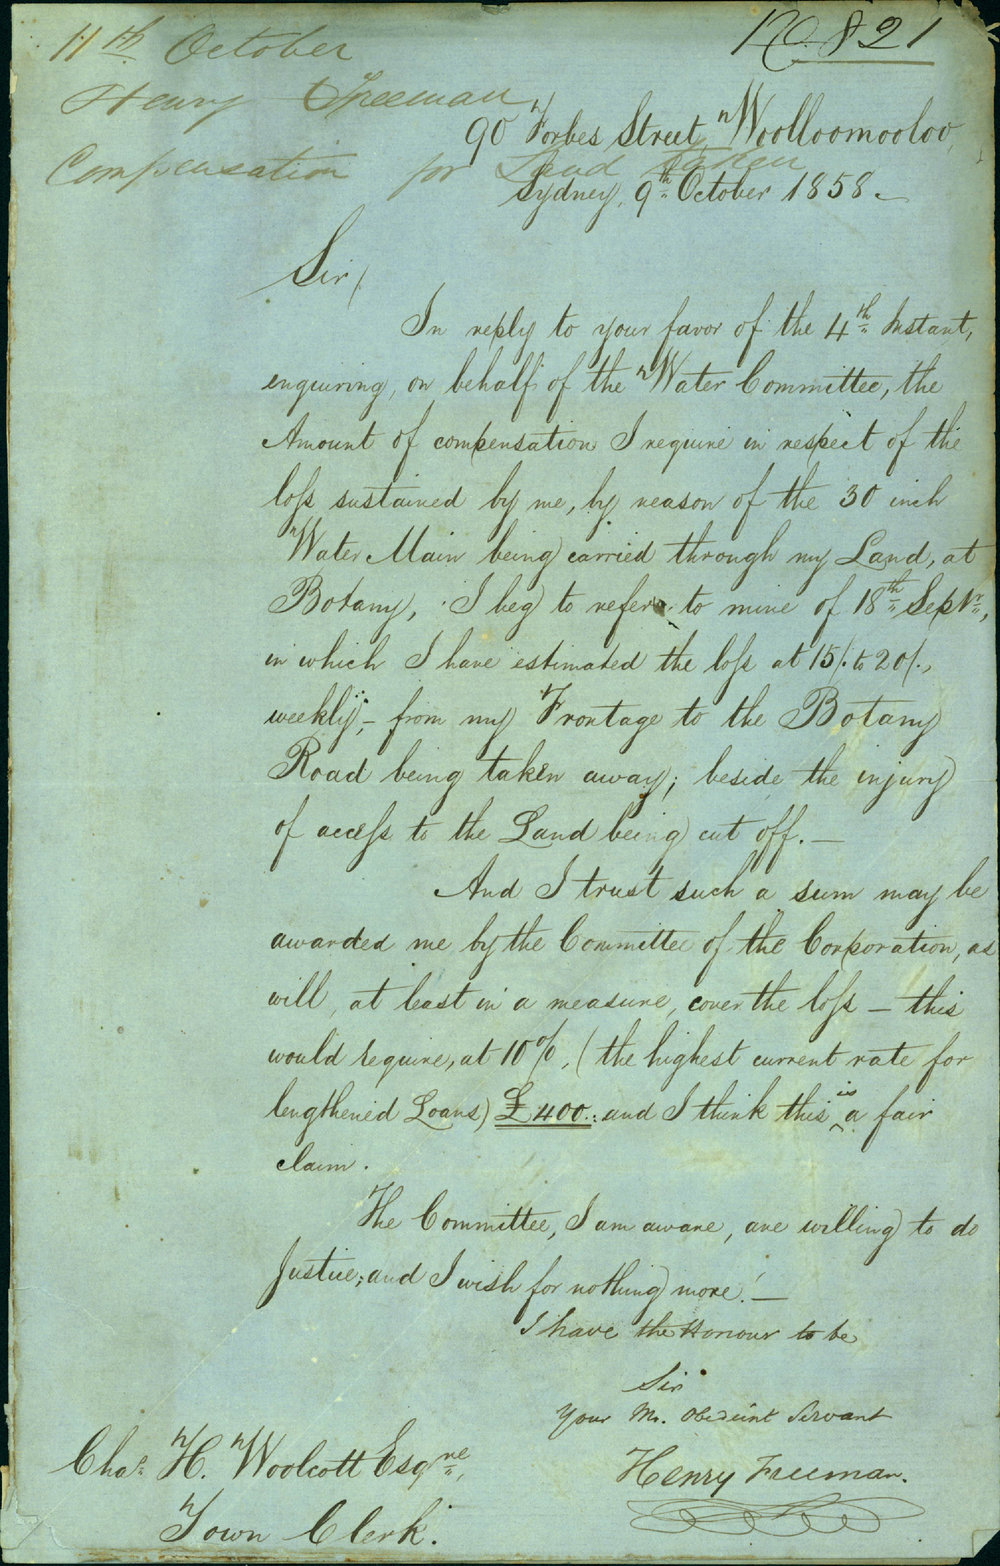 No. 821
11th October
Henry Freeman
Compensation for Land taken
90 Forbes Street, Woolloomooloo,
Sydney, 9th October 1858.
Sir,
In reply to your favor of the 4th Instant,
enquiring, on behalf of the Water Committee, the
Amount of compensation I require in respect of the
loss sustained by me, by reason of the 30 inch
Water Main being carried through my Land, at
Botany, I beg to refer to mine of 18th Septr.,
in which I have estimated the loss at 15/. to 20/.,
weekly, – from my Frontage to the Botany
Road being taken away; beside the injury
of access to the Land being cut off. —
And I trust such a sum may be
awarded me by the Committee of the Corporation, as
will, at least in a measure, cover the loss – this
would require, at 10%, (the highest current rate for
lengthened Loans) £400.: and I think this is a fair
claim.
The Committee, I am aware, are willing to do
Justice; and I wish for nothing more! —
I have the Honour to be
Sir
Your Mo. Obedient Servant
Henry Freeman.
Chas. H. Woolcott Esqre.,
Town Clerk.